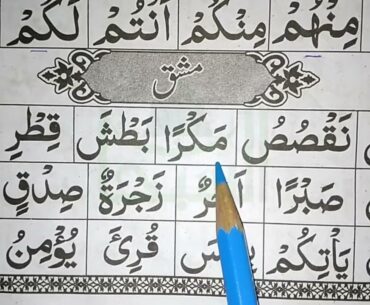 مِنْهُمْ مِنْكُمْ اَنْتُمْ لَكُمْ
مشق
نَقْصُصُ مَكْرًا بَطْشَ قِطْرِ
صَبْرًا زَجْرَةٌ صِدْقٍ
يَأْتِكُمْ قُرِئَ يُؤْمِنُ